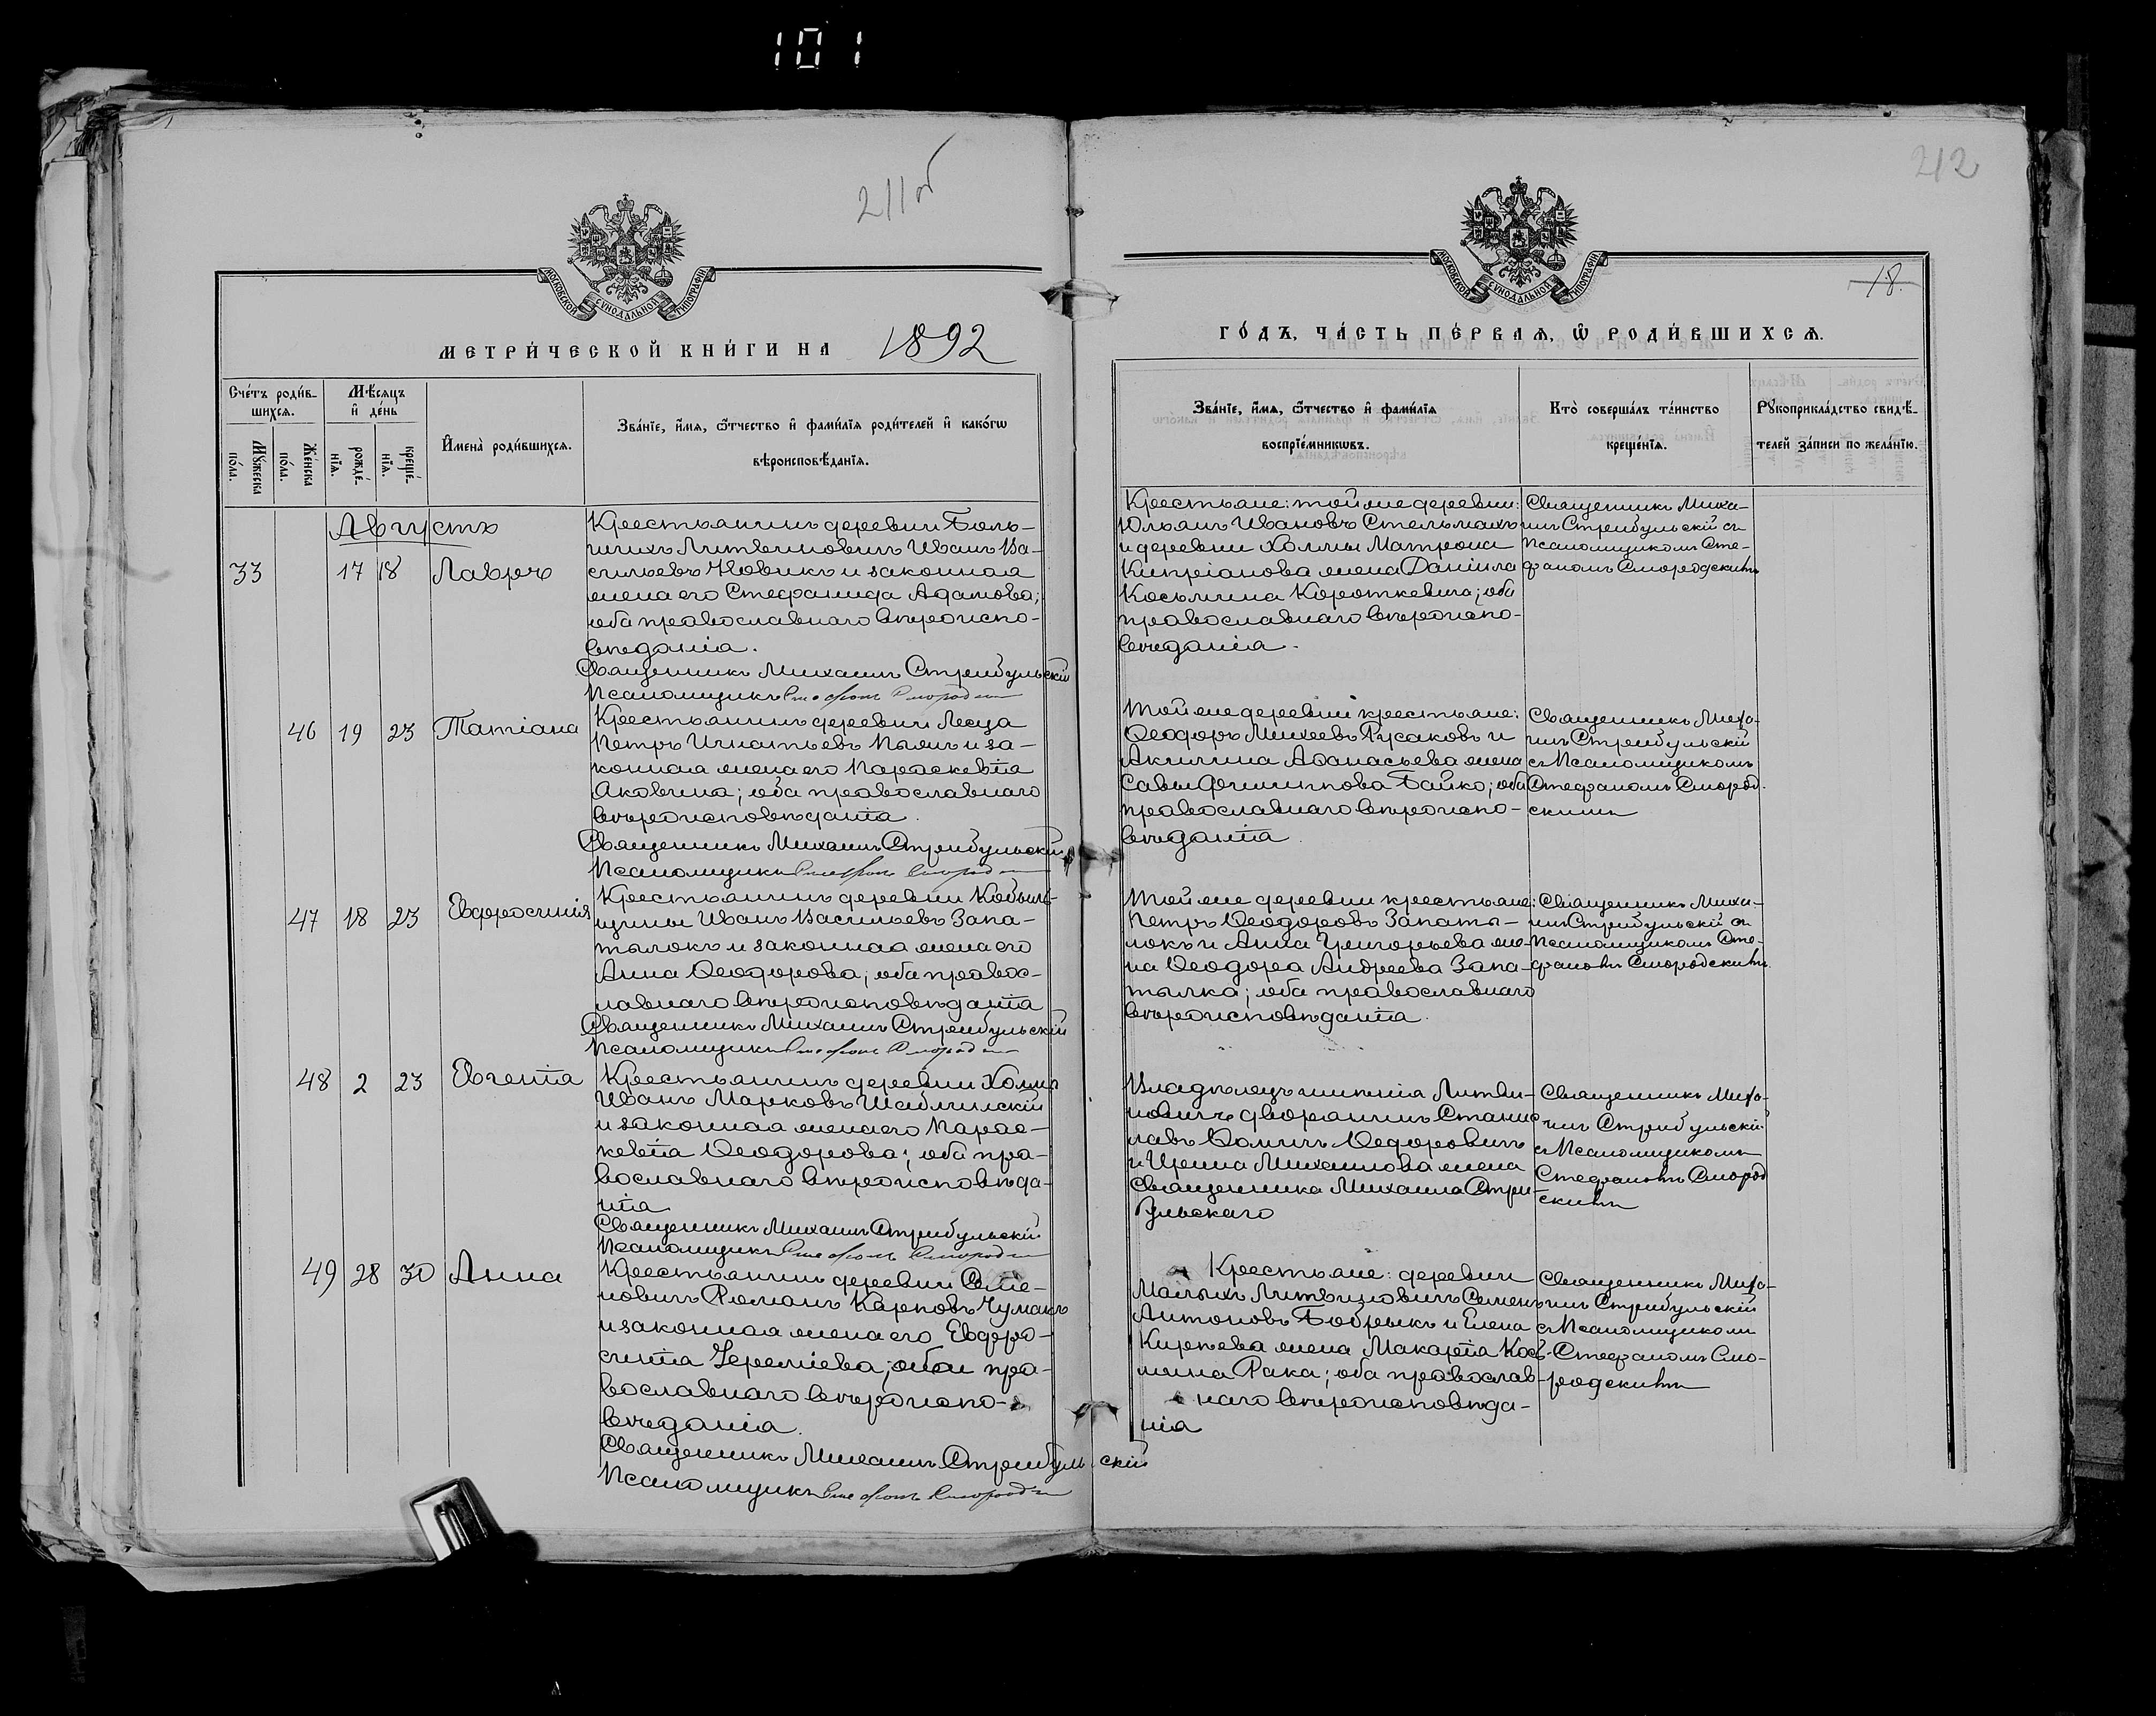 101
211об
212
МОСКОВСКОЙ СѴНОДАЛЬНОЙ ТИПОГРАФІИ
МОСКОВСКОЙ СѴНОДАЛЬНОЙ ТИПОГРАФІИ
18.
МЕТРИ́ЧЕСКОЙ КНИ́ГИ НА 1892
ГО́ДЪ, ЧА́СТЬ ПЕ́РВАЯ, Ѡ҆ РОДИ́ВШИХСЯ.
Сче́тъ роди́в-
шихся.
Мꙋ́жеска
по́ла.
Же́нска
по́ла.
Мѣ́сяцъ
и҆ де́нь
рожде́-
нїя.
креще́-
нїя.
И҆мена̀ роди́вшихся.
Зва́нїе, и҆́мя, ѻ҆́тчество и҆ фами́лїя роди́телей и҆ како́гѡ
вѣроисповѣ́данїя.
Зва́нїе, и҆́мя, ѻ҆́тчество и҆ фами́лїя
воспрїе́мникѡвъ.
Кто̀ соверша́лъ та́инство
креще́нїя.
Рꙋкоприкла́дство свидѣ́-
телей за́писи по жела́нїю.
Августъ
33 17 18 Лавръ
Крестьянинъ деревни Боль-
шихъ Литвиновичъ Иванъ Ва-
сильевъ Новикъ и законная
жена его Стефанида Адамова;
оба православнаго вѣроиспо-
вѣданія.
Священникъ Михаилъ Стрибульскій
Псаломщикъ Стефанъ
Крестьяне: той же деревни:
Юльянъ Ивановъ Стельмахъ
и деревни Холмы Матрона
Кипріанова жена Даніила
Косьмина Короткевича; оба
православнаго вѣроиспо-
вѣданія.
Священникъ Миха-
илъ Стрибульскій съ
Псаломщикомъ Сте-
фаномъ Смородскимъ
46 19 23 Татіана
Крестьянинъ деревни
Петръ Игнатьевъ и за-
конная жена его Параскевія
Яковлева; оба православнаго
вѣроисповѣданія.
Священникъ Михаилъ Стрибульскій
Псаломщикъ Стефанъ
Той же деревни крестьяне:
Ѳеодоръ Михеевъ Русаковъ и
Акилина Аѳанасьева жена
Савы Байко; оба
православнаго вѣроиспо-
вѣданія.
Священникъ Миха-
илъ Стрибульскій
съ Псаломщикомъ
Стефаномъ Смород-
скимъ
47 18 23 Евфросинія
Крестьянинъ деревни Кобыль-
щины Иванъ Васильевъ Запа-
тылокъ и законная жена его
Анна Ѳеодорова; оба правос-
лавнаго вѣроисповѣданія
Священникъ Михаилъ Стрибульскій
Псаломщикъ Стефанъ
Той же деревни крестьяне:
Петръ Ѳеодоровъ Запаты-
локъ и Анна Григорьева же-
на Ѳеодора Андреева Запа-
тылка; оба православнаго
вѣроисповѣданія.
Священникъ Миха-
илъ Стрибульскій съ
Псаломщикомъ Сте-
фаномъ Смородскимъ.
48 2 23 Евгенія
Крестьянинъ деревни Холмы
Иванъ Марковъ
и законная жена его Парас-
кевія Ѳеодорова; оба пра-
вославнаго вѣроисповѣда-
нія
Священникъ Михаилъ Стрибульскій
Псаломщикъ Стефанъ
Владѣлецъ имѣнія Литви-
новичъ дворянинъ Станис-
лавъ Ѳедоровичъ
и Ирина Михаилова жена
священника Михаила Стри-
бульскаго
Священникъ Миха-
илъ Стрибульскій
съ Псаломщикомъ
Стефаномъ Смород-
скимъ
49 28 30 Анна
Крестьянинъ деревни Семе-
новичъ Романъ Карповъ Чумакъ
и законная жена его Евфро-
синія Іереміева; оба пра-
вославнаго вѣроиспо-
вѣданія.
Священникъ Михаилъ Стрибульскій
Псаломщикъ Стефанъ
Крестьяне: деревни
Малыхъ Литвиновичъ Семенъ
Антоновъ Бобрыкъ и Елена
Кирѣева жена Макарія Кось-
мина Рака; оба православ-
наго вѣроисповѣда-
нія
Священникъ Миха-
илъ Стрибульскій
съ Псаломщикомъ
Стефаномъ Смо-
родскимъ